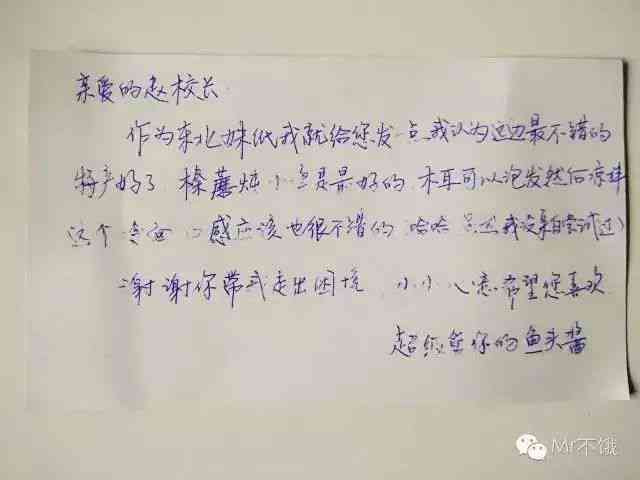 亲爱的赵校长
作为东北妹纸我就给您发一点我认为这边最不错的
特产好了 榛蘑炖小鸡是最好的 木耳可以泡发然后凉拌
这个 口感应该也很不错的 哈哈 只是我没亲自尝试过)
谢谢你带我走出困境 小小心意希望您喜欢
超级爱你的鱼头酱
Mr不饿